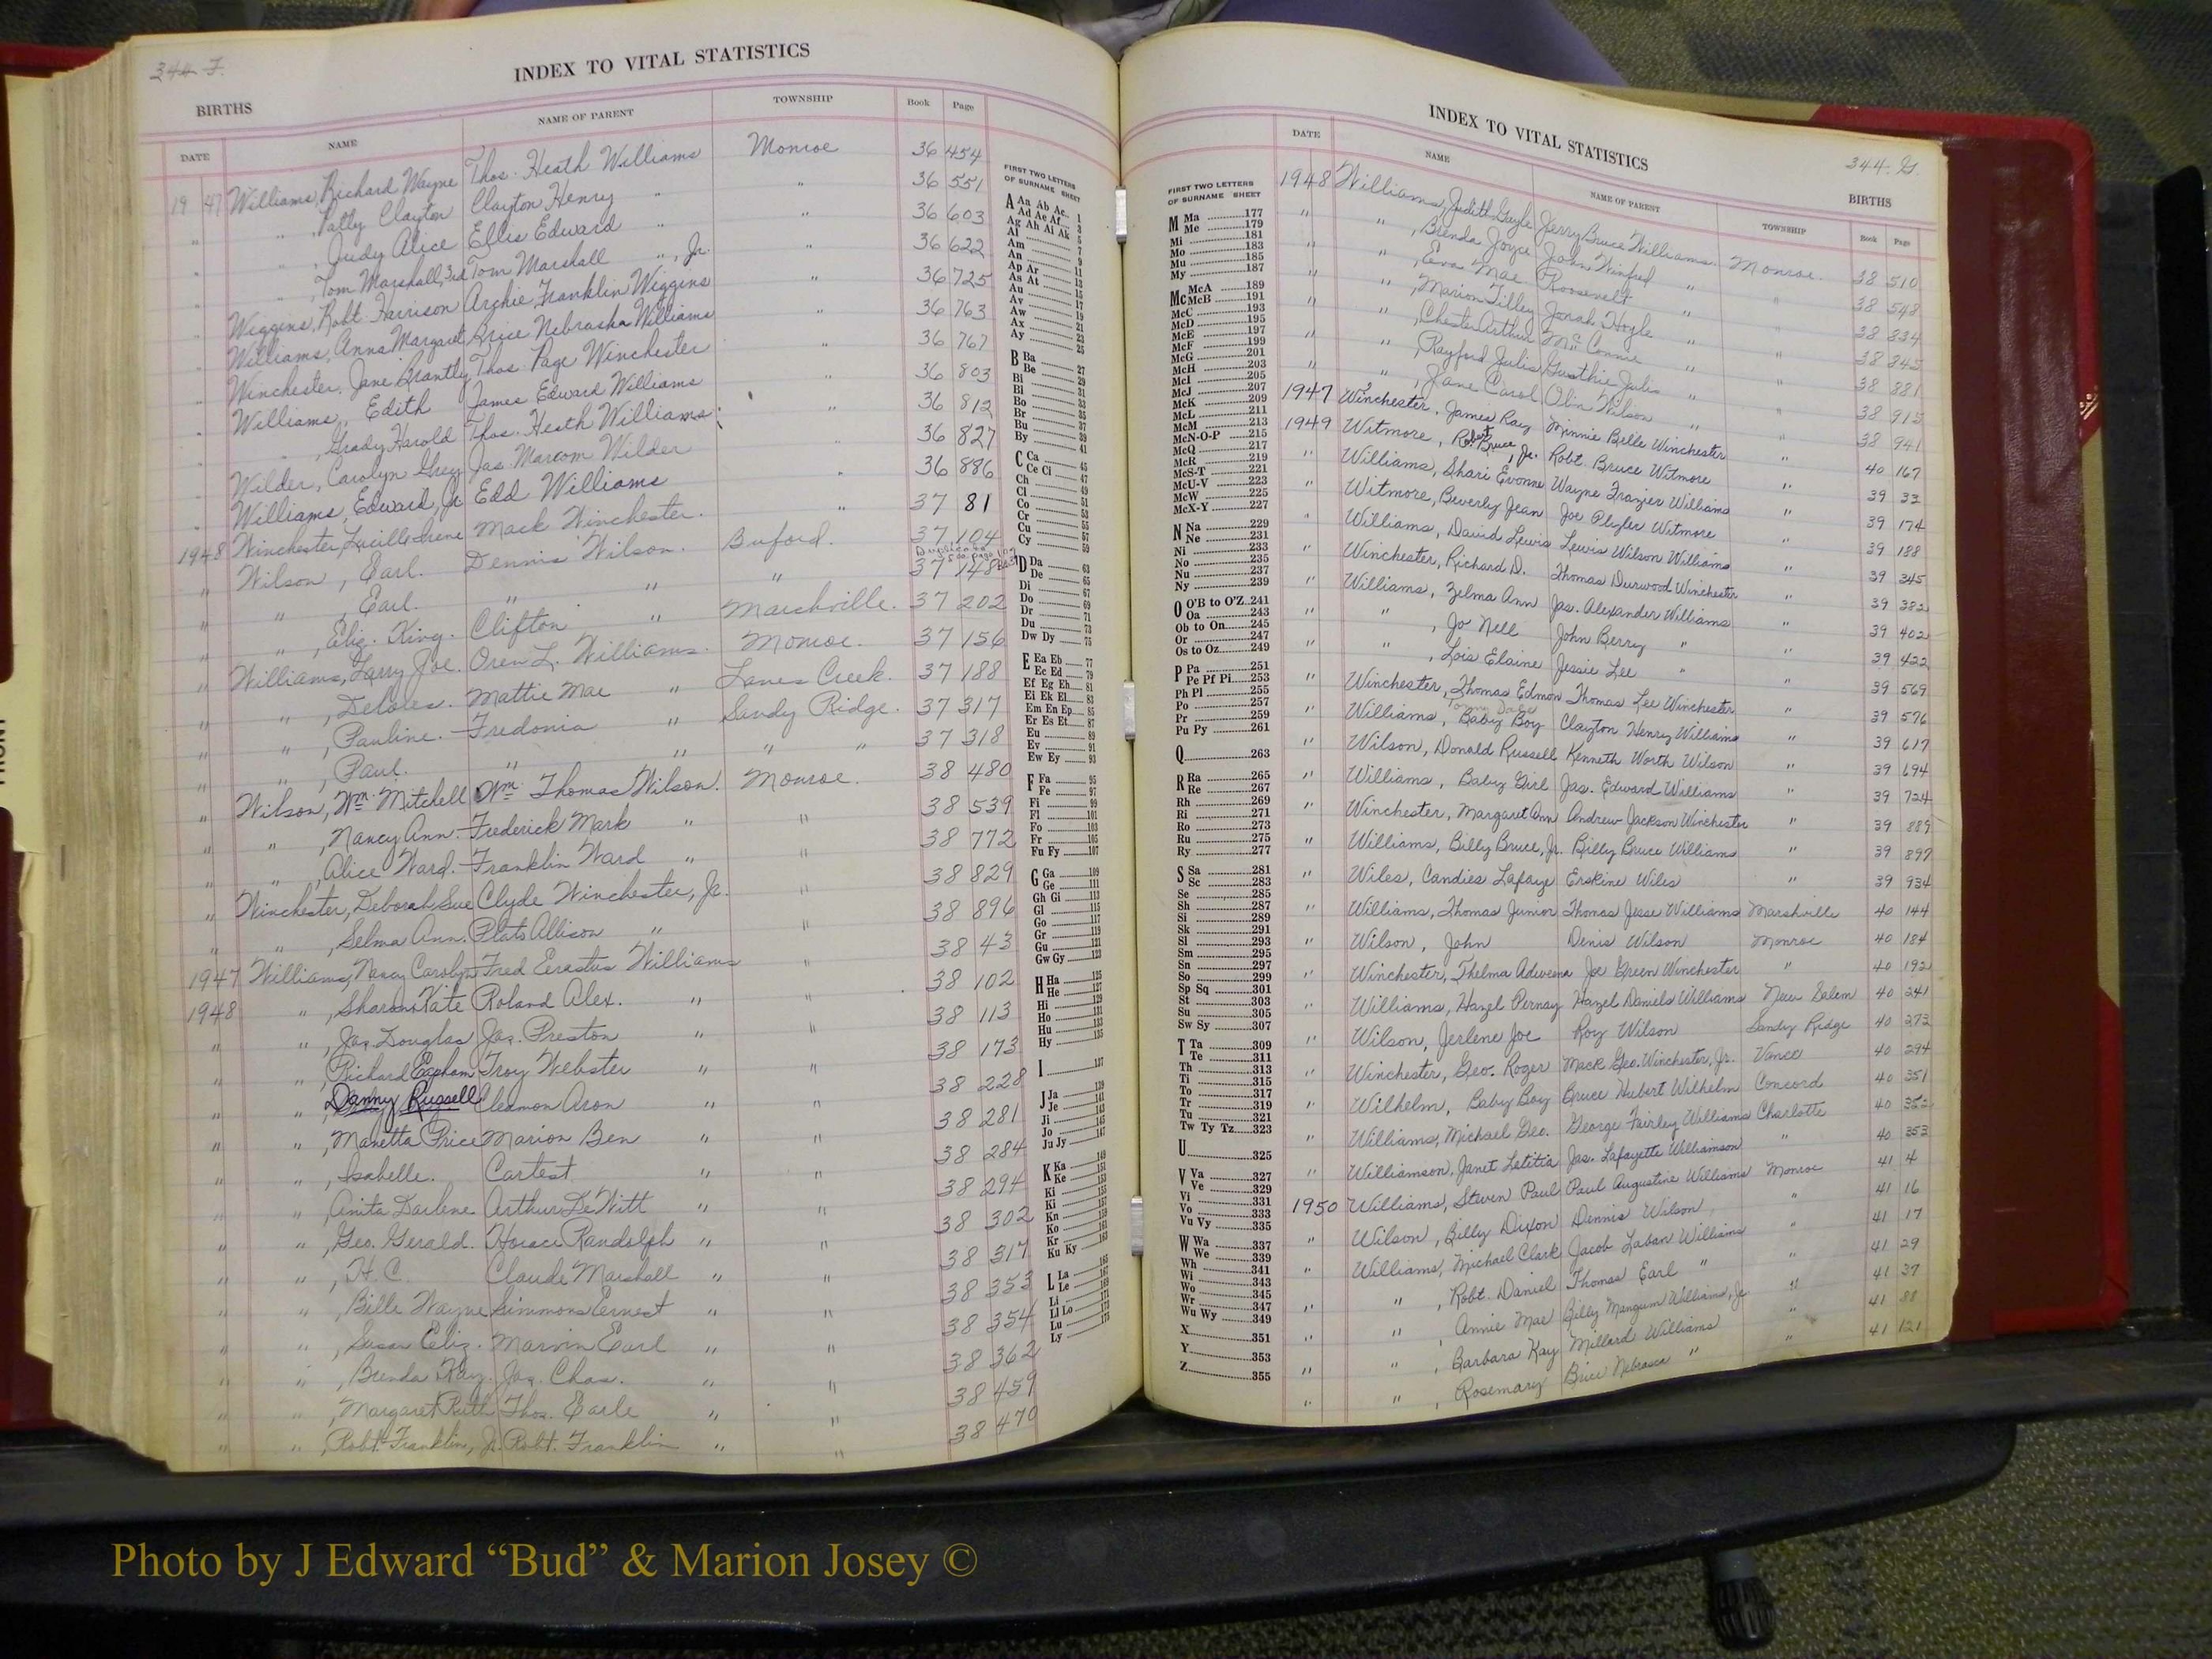 344 F.
INDEX TO VITAL STATISTICS
BIRTHS
DATE NAME NAME OF PARENT TOWNSHIP Book Page
1947 Williams, Richard Wayne Thos. Heath Williams Monroe 36 454
" " , Patty Clayton Clayton Henry " " 36 551
" " , Judy Alice Ellis Edward " " 36 603
" " , Tom Marshall, 3rd Tom Marshall " , Jr. " 36 622
" Wiggins, Robt. Harrison Archie Franklin Wiggins " 36 725
" Williams, Anna Margaret Brice Nebraska Williams " 36 763
" Winchester, Jane Brantly Thos. Page Winchester " 36 767
" Williams, Edith James Edward Williams " 36 803
" " , Grady Harold Thos. Heath Williams " 36 812
" Wilder, Carolyn Grey Jas. Marcom Wilder " 36 827
" Williams, Edward, Jr. Edd Williams " 36 886
1948 Winchester, Lucille Irene Mack Winchester. " 37 81
" Wilson, Earl. Dennis Wilson. Buford. 37 104
" " , Earl. " " " 37 148
" " , Eliz. King. Clifton " Marshville. 37 202
" Williams, Larry Joe. Oren L. Williams. Monroe. 37 156
" " , Delores. Mattie Mae " Lanes Creek. 37 188
" " , Pauline. Fredonia " Sandy Ridge. 37 317
" " , Paul. " " " " 37 318
" Wilson, Wm. Mitchell Wm. Thomas Wilson. Monroe. 38 480
" " , Nancy Ann. Frederick Mark " " 38 539
" " , Alice Ward. Franklin Ward " " 38 772
" Winchester, Deborah Sue Clyde Winchester, Jr. " 38 829
" " , Selma Ann. Plato Allison " " 38 896
1947 Williams, Nancy Carolyn Fred Erastus Williams " 38 43
1948 " , Sharon Kate Roland Alex. " " 38 102
" " , Jas. Douglas Jas. Preston " " 38 113
" " , Richard Troy Webster " " 38 173
" " , Danny Russell Cleamon Aron " " 38 228
" " , Manetta Price Marion Ben " " 38 281
" " , Isabelle. Cartest " " 38 284
" " , Anita Darlene Arthur DeWitt " " 38 294
" " , Geo. Gerald. Horace Randolph " " 38 302
" " , H. C. Claude Marshall " " 38 317
" " , Bille Wayne Simmons Ernest " " 38 353
" " , Susan Eliz. Marvin Earl " " 38 354
" " , Brenda Kay. Jas. Chas. " " 38 362
" " , Margaret Ruth Thos. Earle " " 38 459
" " , Robt. Franklin, Jr. Robt. Franklin " " 38 470
FIRST TWO LETTERS
OF SURNAME SHEET
A Aa Ab Ac 1
Ad Ae Af 3
Ag Ah Ai Ak 5
Al 7
Am 9
An 11
Ap Ar 13
As At 15
Au 17
Av 19
Aw 21
Ax 23
Ay 25
B Ba 27
Be 29
Bi 31
Bl 33
Bo 35
Br 37
Bu 39
By 41
C Ca 45
Ce Ci 47
Ch 49
Cl 51
Co 53
Cr 55
Cu 57
Cy 59
D Da 63
De 65
Di 67
Do 69
Dr 71
Du 73
Dw Dy 75
E Ea Eb 77
Ec Ed 79
Ef Eg Eh 81
Ei Ek El 83
Em En Ep 85
Er Es Et 87
Eu 89
Ev 91
Ew Ey 93
F Fa 95
Fe 97
Fi 99
Fl 101
Fo 103
Fr 105
Fu Fy 107
G Ga 109
Ge 111
Gh Gi 113
Gl 115
Go 117
Gr 119
Gu 121
Gw Gy 123
H Ha 125
He 127
Hi 129
Ho 131
Hu 133
Hy 135
I 137
J Ja 139
Je 141
Ji 143
Jo 145
Ju Jy 147
K Ka 149
Ke 151
Ki 153
Ki 155
Kn 157
Ko 159
Kr 161
Ku Ky 163
L La 165
Le 167
Li 169
Ll Lo 171
Lu 173
Ly 175
INDEX TO VITAL STATISTICS
344 G.
BIRTHS
DATE NAME NAME OF PARENT TOWNSHIP Book Page
FIRST TWO LETTERS
OF SURNAME SHEET
M Ma 177
Me 179
Mi 181
Mo 183
Mu 185
My 187
Mc McA 189
McB 191
McC 193
McD 195
McE 197
McF 199
McG 201
McH 203
McI 205
McJ 207
McK 209
McL 211
McM 213
McN-O-P 215
McQ 217
McR 219
McS-T 221
McU-V 223
McW 225
McX-Y 227
N Na 229
Ne 231
Ni 233
No 235
Nu 237
Ny 239
O O'B to O'Z 241
Oa 243
Ob to On 245
Or 247
Os to Oz 249
P Pa 251
Pe Pf Pi 253
Ph Pl 255
Po 257
Pr 259
Pu Py 261
Q 263
R Ra 265
Re 267
Rh 269
Ri 271
Ro 273
Ru 275
Ry 277
S Sa 281
Sc 283
Se 285
Sh 287
Si 289
Sk 291
Sl 293
Sm 295
Sn 297
So 299
Sp Sq 301
St 303
Su 305
Sw Sy 307
T Ta 309
Te 311
Th 313
Ti 315
To 317
Tr 319
Tu 321
Tw Ty Tz 323
U 325
V Va 327
Ve 329
Vi 331
Vo 333
Vu Vy 335
W Wa 337
We 339
Wh 341
Wi 343
Wo 345
Wr 347
Wu Wy 349
X 351
Y 353
Z 355
1948 Williams, Judith Gayle Jerry Bruce Williams. Monroe. 38 510
" " , Brenda Joyce John Winfred " " 38 548
" " , Eva Mae Roosevelt " " 38 834
" " , Marion Tilley Jonah Hoyle " " 38 845
" " , Chester Arthur McConnie " " 38 881
" " , Rayford Julis Gusthie Julis " " 38 915
" " , Jane Carol Olin Wilson " " 38 941
1947 Winchester, James Ray Minnie Belle Winchester " 40 167
1949 Witmore, Robert Bruce, Jr. Robt. Bruce Witmore " 39 33
" Williams, Shari Evonne Wayne Frazier Williams " 39 174
" Witmore, Beverly Jean Joe Plyler Witmore " 39 188
" Williams, David Lewis Lewis Wilson Williams " 39 345
" Winchester, Richard D. Thomas Durwood Winchester " 39 382
" Williams, Zelma Ann Jas. Alexander Williams " 39 402
" " , Jo Nell John Berry " " 39 422
" " , Lois Elaine Jessie Lee " " 39 569
" Winchester, Thomas Edmon Thomas Lee Winchester " 39 576
" Williams, Baby Boy Clayton Henry Williams " 39 617
" Wilson, Donald Russell Kenneth Worth Wilson " 39 694
" Williams, Baby Girl Jas. Edward Williams " 39 724
" Winchester, Margaret Ann Andrew Jackson Winchester " 39 889
" Williams, Billy Bruce, Jr. Billy Bruce Williams " 39 897
" Wiles, Candies Lafaye Erskine Wiles " 39 934
" Williams, Thomas Junior Thomas Jesse Williams Marshville 40 144
" Wilson, John Denis Wilson Monroe 40 184
" Winchester, Thelma Adweena Joe Green Winchester " 40 192
" Williams, Hazel Pernay Hazel Daniels Williams New Salem 40 241
" Wilson, Jerlene Joe Roy Wilson Sandy Ridge 40 273
" Winchester, Geo. Roger Mack Geo. Winchester, Jr. Vance 40 294
" Wilhelm, Baby Boy Bruce Hubert Wilhelm Concord 40 351
" Williams, Michael Geo. George Fairley Williams Charlotte 40 352
" Williamson, Janet Letitia Jas. Lafayette Williamson " 40 353
1950 Williams, Steven Paul Paul Augustine Williams Monroe 41 4
" Wilson, Billy Dixon Dennis Wilson " 41 16
" Williams, Michael Clark Jacob Laban Williams " 41 17
" " , Robt. Daniel Thomas Earl " " 41 29
" " , Annie Mae Billy Mangum Williams, Jr. " 41 37
" " , Barbara Kay Millard Williams " 41 88
" " , Rosemary Brice Nebrasca " " 41 121
Photo by J Edward “Bud” & Marion Josey ©